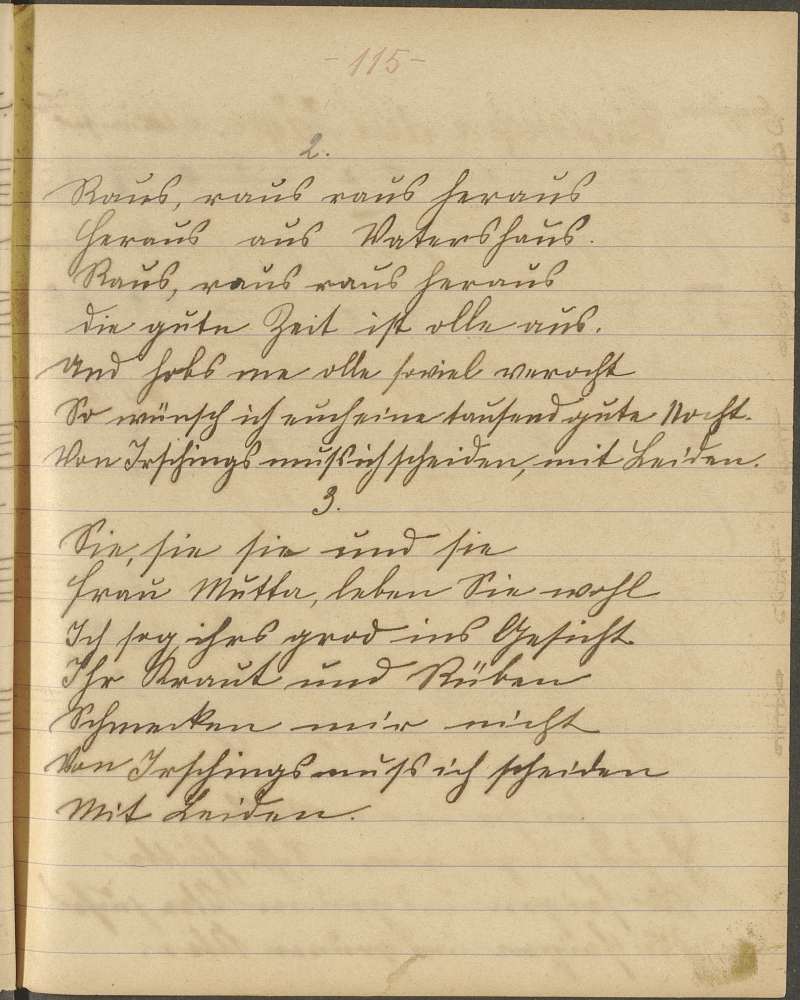 - 115 -
2.
Raus, raus raus heraus
Heraus aus Vatershaus.
Raus, raus raus heraus
die gute Zeit ist olle aus.
And hobs me olle soviel verocht
So wünsch ich euch eine tausend gute Nocht.
Von Irschings muß ich scheiden, mit Leiden.
3.
Sie, sie sie und sie
Frau Mutta, leben Sie wohl
Ich sog ihrs grod ins Gesicht
Ihr Kraut und Rüben
Schmecken mir nicht
Von Irschings muß ich scheiden
Mit Leiden.